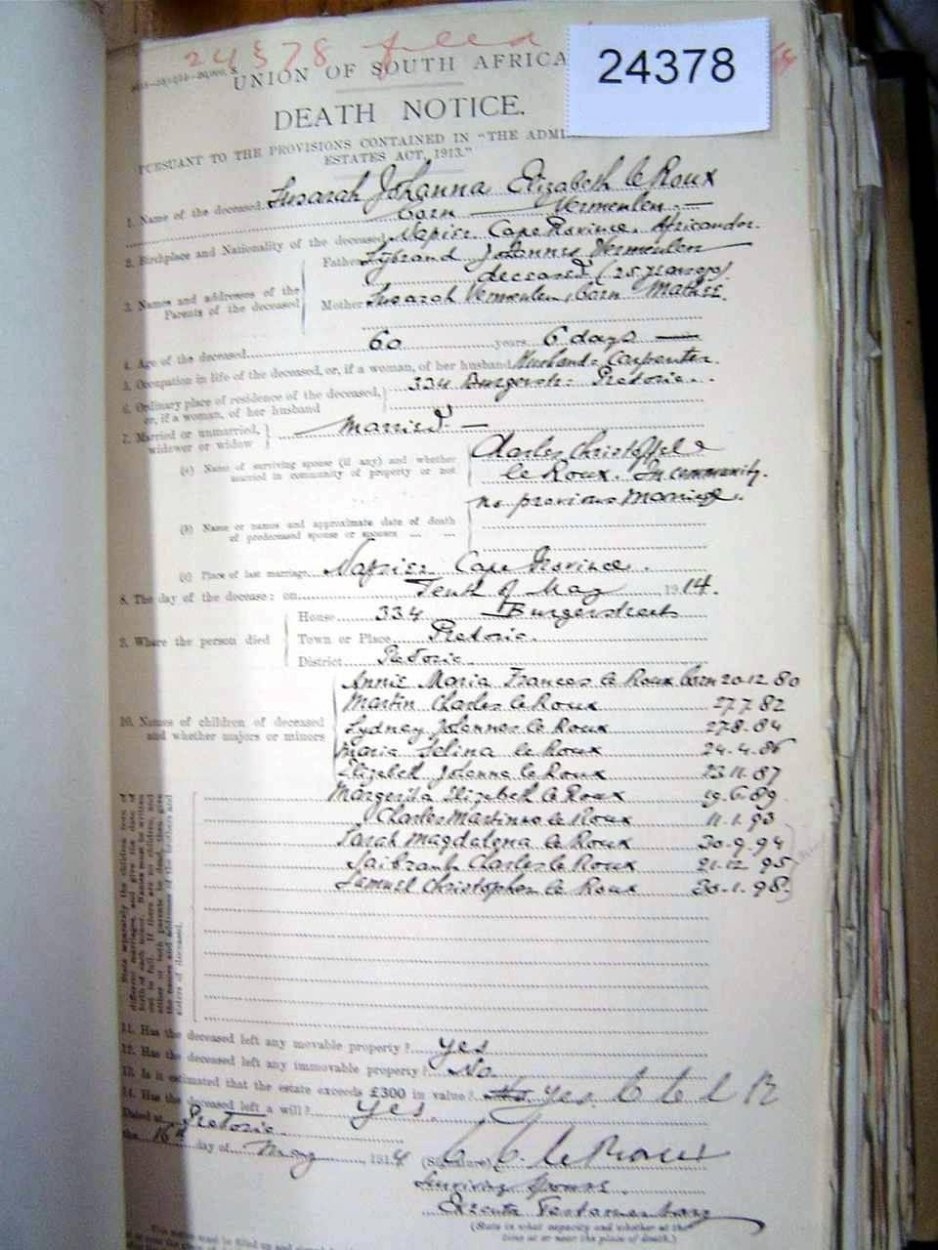 24378 filed
24378
UNION OF SOUTH AFRICA
DEATH NOTICE.
PURSUANT TO THE PROVISIONS CONTAINED IN "THE ADMI
ESTATES ACT, 1913."
1. Name of the deceased Susarah Johanna Elizabeth le Roux
born Vermeulen.
2. Birthplace and Nationality of the deceased Napier Cape Province. Africander.
3. Names and addresses of the Parents of the deceased
Father Sybrand Johannes Vermeulen
deceased (25 years ago)
Mother Susarah Vermeulen, born
4. Age of the deceased 60 years 6 days
5. Occupation in life of the deceased, or, if a woman, of her husband Husband: Carpenter.
6. Ordinary place of residence of the deceased, or, if a woman, of her husband 334 Burgerstr: Pretoria.
7. Married or unmarried, widower or widow Married
(a) Name of surviving spouse (if any) and whether married in community of property or not
Charles Christoffel
le Roux. In community.
no previous Marriage.
(b) Name or names and approximate date of death of predeceased spouse or spouses
(c) Place of last marriage Napier Cape Province.
8. The day of the decease: on Tenth of May 1914.
9. Where the person died
House 334 Burgerstreet
Town or Place Pretoria.
District Pretoria.
10. Names of children of deceased and whether majors or minors
Annie Maria Frances le Roux born 20.12.80
Martin Charles le Roux 27.7.82
Sydney Johannes le Roux 27.8.84
Maria Selina le Roux 24.4.86
Elizabeth Johanna le Roux 23.11.87
Margerita Elizabeth le Roux 19.6.89
Charles Martinus le Roux 11.1.93
Sarah Magdalena le Roux 30.9.94
Saibrant Charles le Roux 21.12.95
Samuel Christophen le Roux 30.1.98
11. Has the deceased left any movable property? Yes
12. Has the deceased left any immovable property? No
13. Is it estimated that the estate exceeds £300 in value? Yes. C C l R
14. Has the deceased left a will? Yes.
Dated at Pretoria
the 16th day of May 1914
(Signature) C. C. le Roux
Surviving Spouse
Executor Testamentary
(State in what capacity and whether at the
time at or near the place of death.)